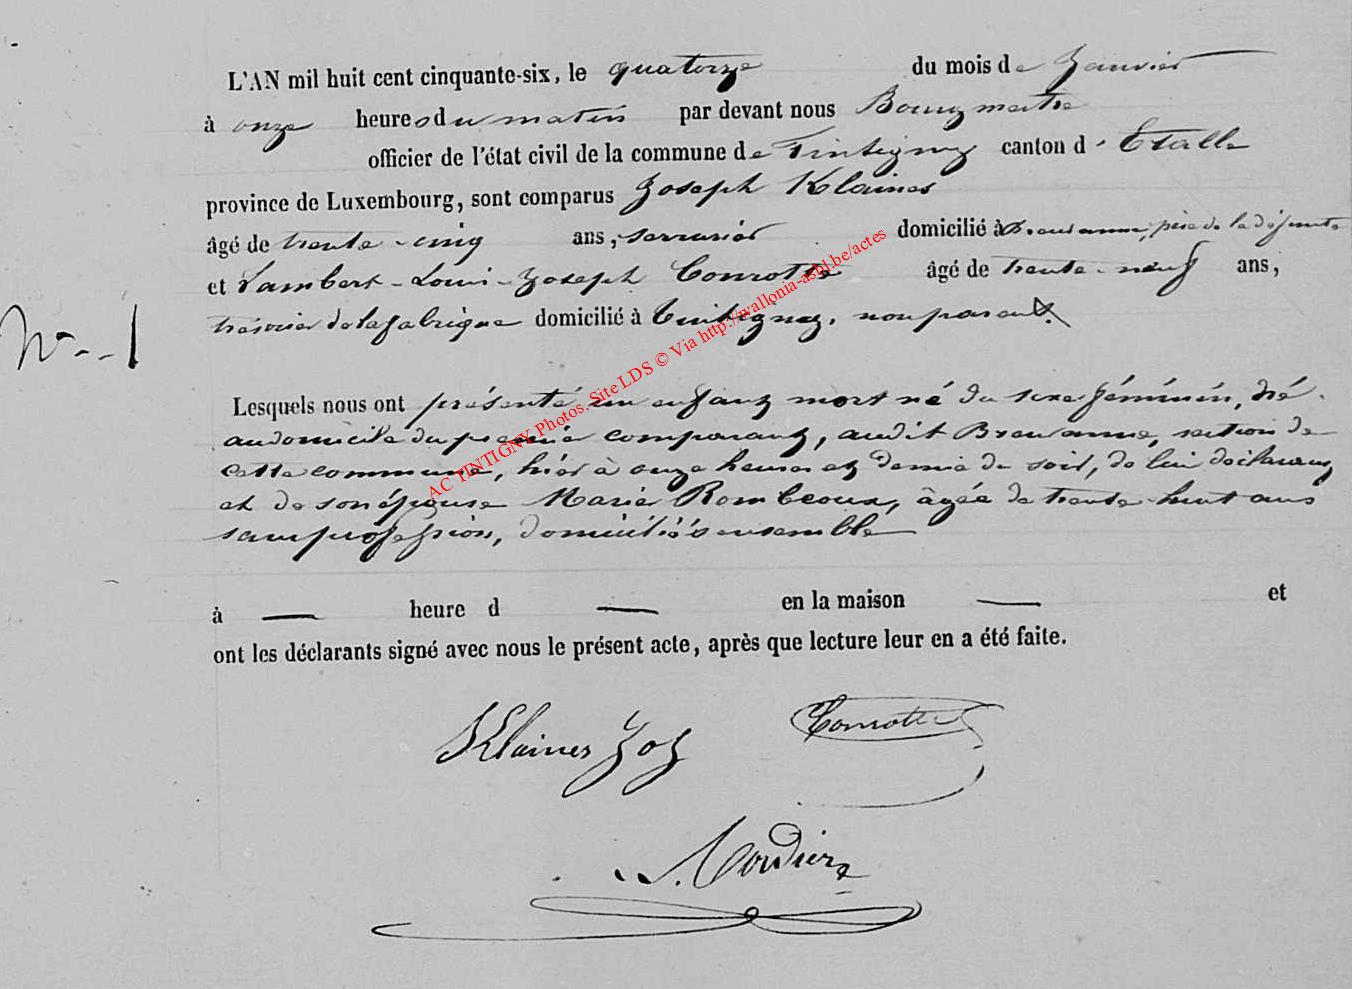 L'AN mil huit cent cinquante-six, le quatorze du mois de Janvier
à onze heures du matin par devant nous Bourgmestre
officier de l'état civil de la commune de Tintigny canton d'Etalle
province de Luxembourg, sont comparus Joseph Klaines
âgé de trente-cinq ans, serrurier domicilié à Breuvanne, père de la défunte
et Lambert-Louis-Joseph Conrotte âgé de trente-neuf ans,
trésorier de la fabrique domicilié à Tintigny, non parent.
N° 1
Lesquels nous ont présenté un enfant mort né du sexe féminin, né
au domicile du premier comparant, audit Breuvanne, section de
cette commune, hier à onze heures et demie du soir, de lui déclarant
et de son épouse Marie Rombeaux, âgée de trente-huit ans
sans profession, domiciliés ensemble
à — heure d — en la maison — et
ont les déclarants signé avec nous le présent acte, après que lecture leur en a été faite.
Klaines Jos Conrotte
Cordier
AC TINTIGNY Photos. Site LDS © Via http://wallonia-asbl.be/actes